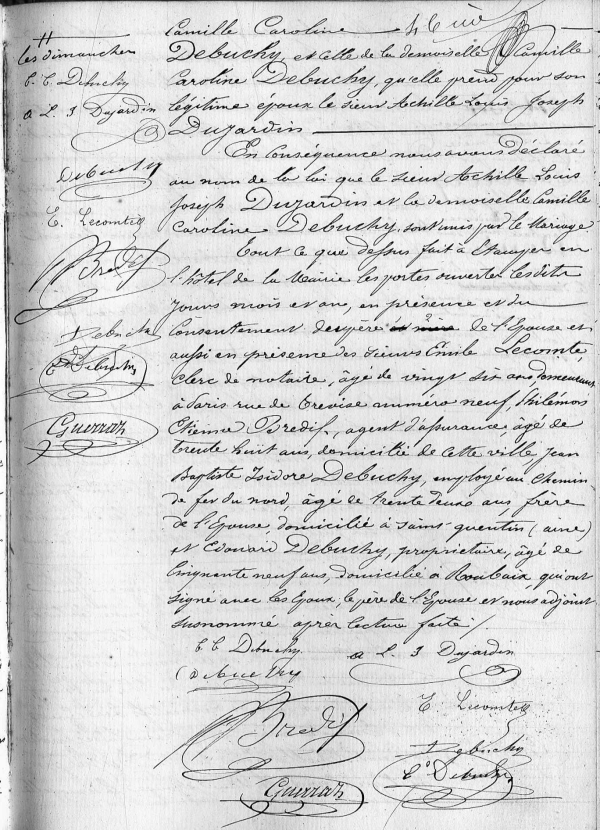 les dimanches
C. C. Debuchy
A L. J Dujardin
Debuchy
E. Lecomte
Bredif
Debuchy
Ed Debuchy
Guerraz
Camille Caroline
Debuchy, et celle de la demoiselle Camille
Caroline Debuchy, qu'elle prend pour son
légitime époux le sieur Achille Louis Joseph
Dujardin
En conséquence nous avons déclaré
au nom de la loi que le sieur Achille Louis
Joseph Dujardin et la demoiselle Camille
Caroline Debuchy, sont unis par le Mariage
Tout ce que dessus fait à Etampes en
l'hôtel de la Mairie les portes ouvertes lesdits
jours mois et an, en présence et du
Consentement des père et mère de l'Epouse et
aussi en présence des sieurs Emile Lecomte
clerc de notaire, âgé de vingt six ans demeurant
à Paris rue de Trévise numéro neuf, Philémon
Etienne Bredif, agent d'assurance, âgé de
trente huit ans, domicilié de cette ville, Jean
Baptiste Isidore Debuchy, employé au Chemin
de fer du nord, âgé de trente deux ans, frère
de l'Epouse domicilié à Saint-quentin (aisne)
et Edouard Debuchy, propriétaire, âgé de
Cinquante neuf ans, domicilié à Roubaix, qui ont
signé avec les Epoux, le père de l'Epouse et nous adjoint
susnommé après lecture faite /
C. C. Debuchy
A L. J Dujardin
Debuchy
E Lecomte
Bredif
Debuchy
Guerraz
Ed Debuchy